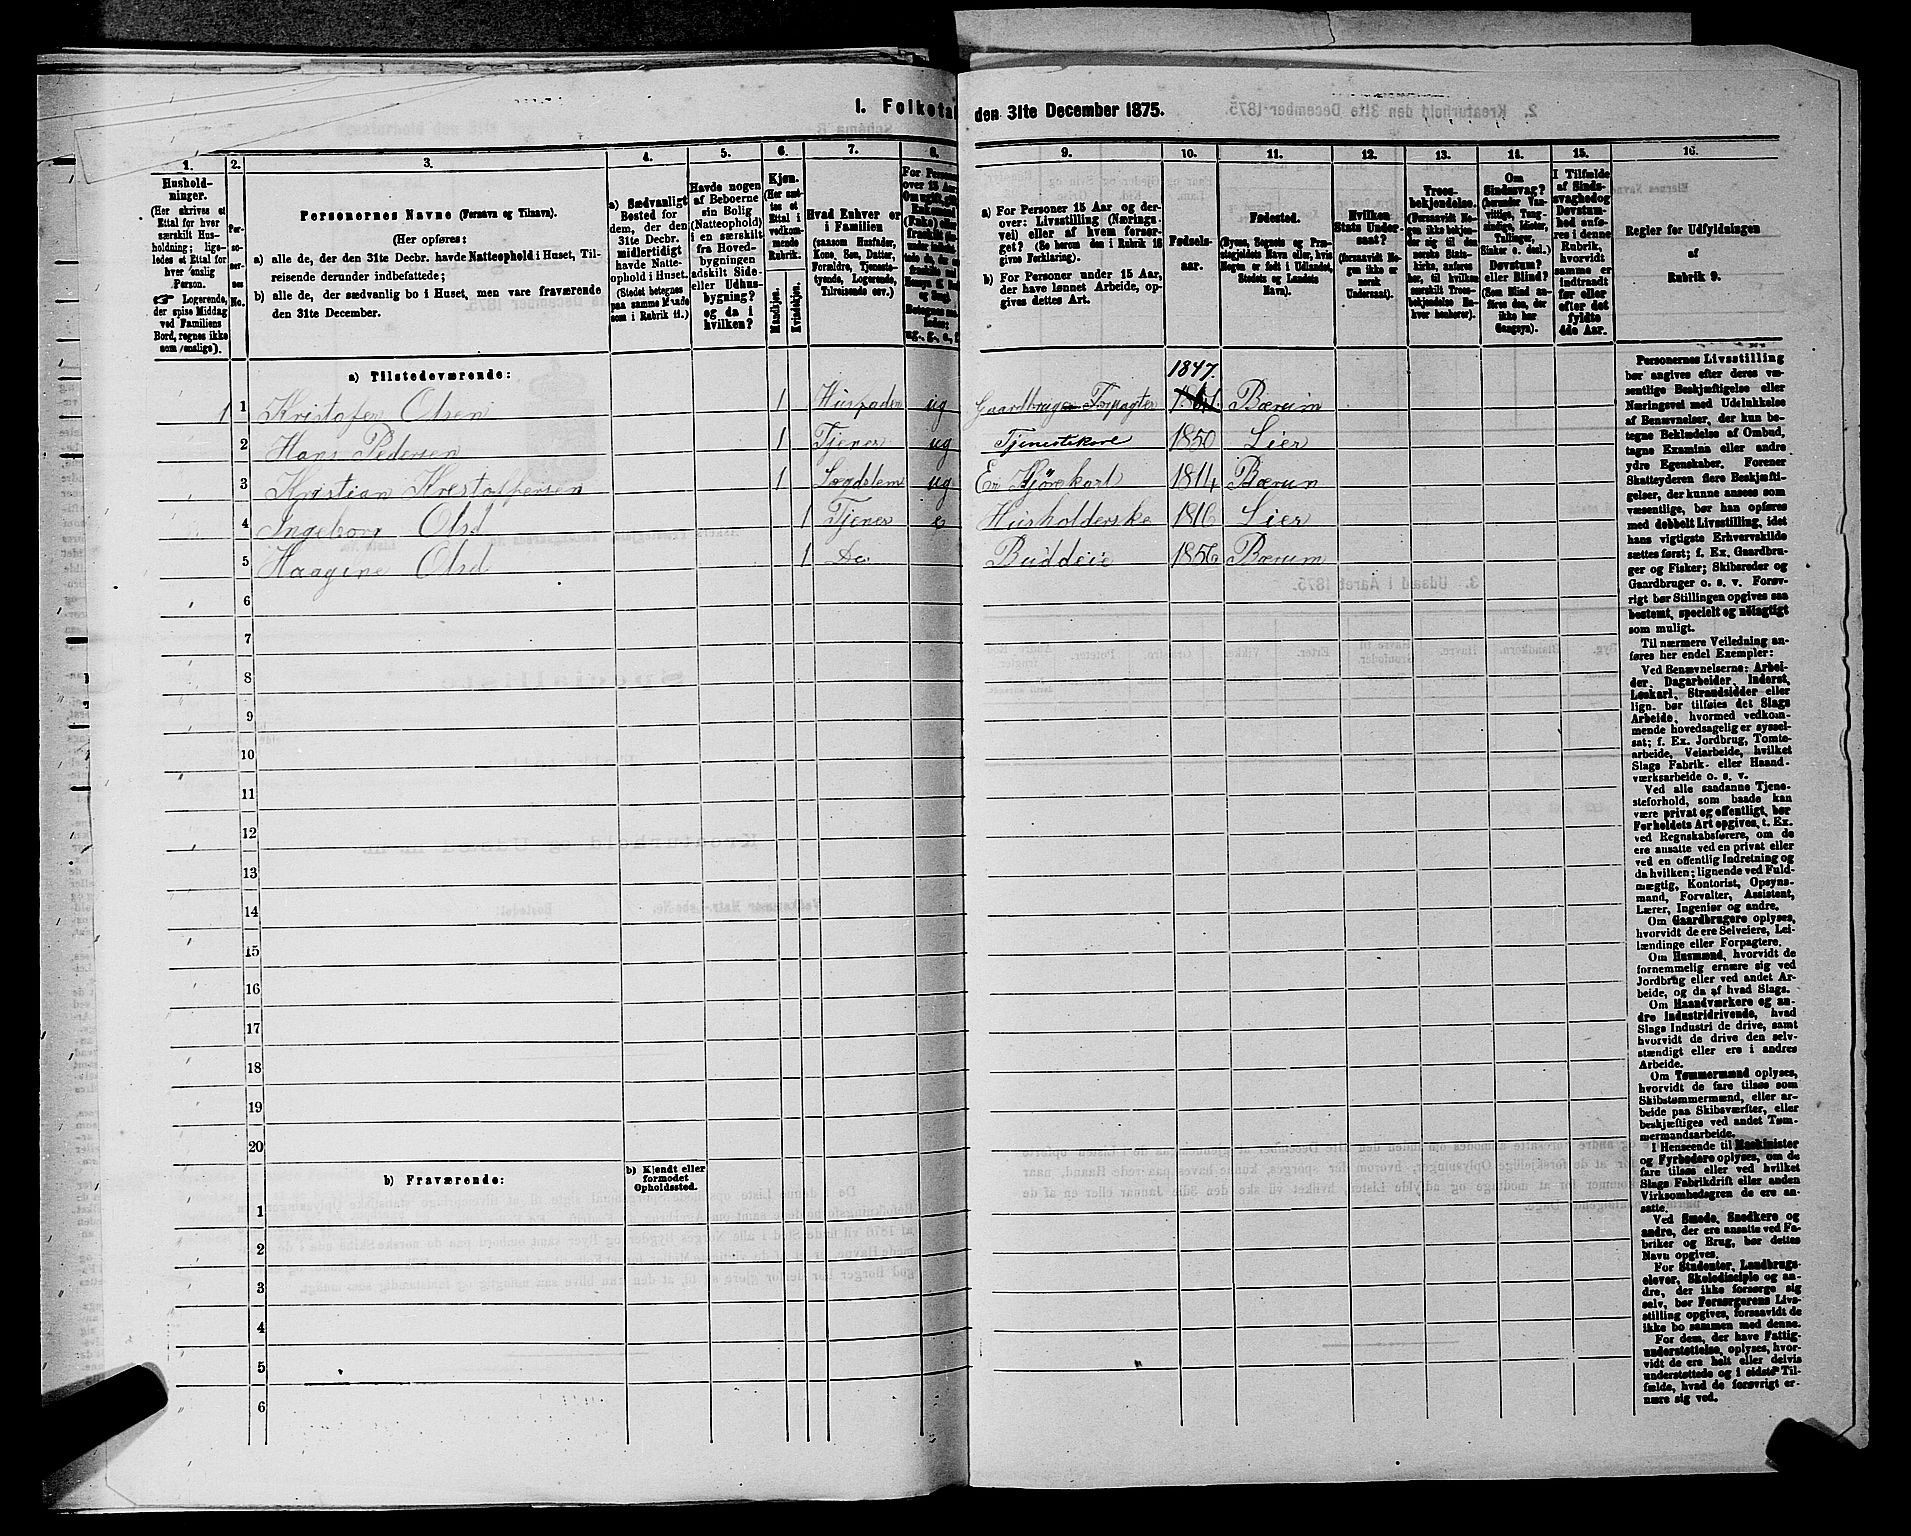 1. Folketal den 31te December 1875.
1. 2. 3. 4. 5. 6. 7. 8. 9. 10. 11. 12. 13. 14. 15. 16.
Hushold-
ninger.
(Her skrives et
Ettal for hver
særskilt Hus-
holdning; lige-
ledes et Ettal for
hver enslig
Person.
☞ Logerende,
der spise Middag
ved Familiens
Bord, regnes ikke
som enslige).
Per-
so-
ner-
nes
No.
Personernes Navne (Fornavn og Tilnavn).
(Her opføres:
a) alle de, der den 31te Decbr. havde Natteophold i Huset, Til-
reisende derunder indbefattede;
b) alle de, der sædvanlig bo i Huset, men vare fraværende
den 31te December.
a) Sædvanligt
Bested for
dem, der den
31te Decbr.
midlertidigt
havde Natte-
ophold i Huset.
(Stedet betegnes
paa samme Maade
som i Rubrik 11.)
Havde nogen
af Beboerne
sin Bolig
(Natteophold)
i en særskilt
fra Hoved-
bygningen
adskilt Side-
eller Udhus-
bygning?
og da i
hvilken?
Kjøn.
(Her sæt-
tes et
Ettal i
vedkom-
mende
Rubrik.
Mandkjøn.
Kvindekjøn.
Hvad Enhver er
i Familien
(saasom Husfader,
Kone, Søn, Datter,
Forældre, Tjeneste-
tyende, Logerende,
Tilreisende osv.)
For Personer
over 15 Aar:
ug., g., e., f.
a) For Personer 15 Aar og der-
over: Livsstilling (Nærings-
vei) eller af hvem forsør-
get? (Se herom den i Rubrik 16
givne Forklaring).
b) For Personer under 15 Aar,
der have lønnet Arbeide, op-
gives dettes Art.
Fødsels-
aar.
Fødested.
(Byens, Sognets og Præ-
stegjeldets Navn eller, hvis
Nogen er født i Udlandet,
Stedets og Landets
Navn).
Hvilken
Stats Under-
saat?
(forsaavidt No-
gen ikke er
norsk
Undersaat).
Troes-
bekjendelse.
(Forsaavidt No-
gen ikke bekjen-
der sig til den
norske Stats-
kirke, anføres
her, til hvilken
særskilt Troes-
bekjendelse En-
hver henhører).
Om
Sindssvag?
(herunder Van-
vittige, Tung-
sindige, Idioter,
Tullinger,
Sinker o. desl.)
Døvstum?
eller Blind?
(Som Blind an-
føres den, der
ikke har
Gangsyn).
I Tilfælde
af Sinds-
svaghed og
Døvstum-
hed anfø-
res i denne
Rubrik,
hvorvidt
samme er
indtraadt
før eller
efter det
fyldte
4de Aar.
Regler for Udfyldningen
af
Rubrik 9.
a) Tilstedeværende:
1847.
1 1 Kristofer Olsen 1 Husfader ug Gaardbruger Forpagter Bærum
2 Hans Pedersen 1 Tjener ug Tjenestekarl 1850 Lier
3 Kristian Kristoffersen 1 Lægdslem ug Kjørekarl 1814 Bærum
4 Ingeborg Olsd 1 Tjener e Husholderske 1816 Lier
5 Haagine Olsd 1 Do Buddeie 1856 Bærum
6
7
8
9
10
11
12
13
14
15
16
17
18
19
20
b) Fraværende:
b) Kjendt eller
formodet
Opholdssted.
1
2
3
4
5
6
Personernes Livsstilling
bør angives efter deres væ-
sentlige Beskjæftigelse eller
Næringsvei med Udelukkelse
af Benævnelser, der kun be-
tegne Beklædelse af Ombud,
tagne Examina eller andre
ydre Egenskaber. Forener
Skatteyderen flere Beskjæfti-
gelser, der kunne ansees som
væsentlige, bør han opføres
med dobbelt Livsstilling, idet
hans vigtigste Erhvervskilde
sættes først; f. Ex. Gaardbru-
ger og Fisker; Skibsreder og
Gaardbruger o. s. v. Forøv-
rigt bør Stillingen opgives saa
bestemt, specielt og nøiagtigt
som muligt.
Til nærmere Veiledning an-
føres her endel Exempler:
Ved Benævnelserne: Arbei-
der, Dagarbeider, Inderst,
Løskarl, Strandsidder eller
lign. bør tilføies det Slags
Arbeide, hvormed vedkom-
mende hovedsagelig er syssel-
sat; f. Ex. Jordbrug, Tomte-
arbeide, Veiarbeide, hvilket
Slags Fabrik- eller Haand-
værksarbeide o. s. v.
Ved alle saadanne Tjene-
steforhold, som baade kan
være privat og offentligt, bør
Forholdets Art opgives, t. Ex.
ved Regnskabsførere, om de
ere ansatte ved en privat eller
ved en offentlig Indretning og
da hvilken; lignende ved Fuld-
mægtig, Kontorist, Opsyns-
mand, Forvalter, Assistent,
Lærer, Ingeniør og andre.
Om Gaardbrugere oplyses,
hvorvidt de ere Selveiere, Lei-
lændinge eller Forpagtere.
Om Husmænd, hvorvidt de
fornemmelig ernære sig ved
Jordbrug eller ved andet Ar-
beide, og da af hvad Slags.
Om Haandværkere og an-
dre Industridrivende, hvad
Slags Industri de drive, samt
hvorvidt de drive den selv-
stændigt eller ere i andres
Arbeide.
Om Tømmermænd oplyses,
hvorvidt de fare tilsøs som
Skibstømmermænd, eller ar-
beide paa Skibsværfter, eller
beskjæftiges ved andet Tøm-
mermandsarbeide.
I Henseende til Maskinister
og Fyrbødere oplyses, om de
fare tilsøs eller ved hvilket
Slags Fabrikdrift eller anden
Virksomhedsgren de ere an-
satte.
Ved Smede, Snedkere og
andre, der ere ansatte ved Fa-
briker og Brug, bør dettes
Navn opgives.
For Studenter, Landbrugs-
elever, Skoledisciple og an-
dre, der ikke forsørge sig
selv, bør Forsørgerens Livs-
stilling opgives, forsaavidt de
ikke bo sammen med denne.
For dem, der have Fattig-
understøttelse, oplyses, hvor-
vidt de ere helt eller delvis
understøttede og i sidste Til-
fælde, hvad de forøvrigt er-
nære sig ved.